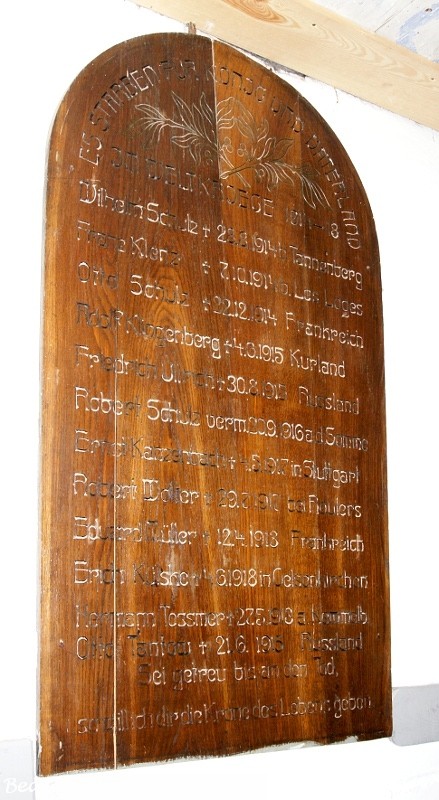 ES STARBEN FÜR KÖNIG UND VATERLAND
IM WELTKRIEGE 1914-18
Wilhelm Schulz + 28.8.1914 b. Tannenberg
Franz Klenz + 7.10.1914 b. Les Luges
Otto Schulz + 22.12.1914 Frankreich
Adolf Klingenberg + 4.6.1915 Kurland
Friedrich Ullrich + 30.8.1915 Russland
Robert Schulz verm. 20.9.1916 a.d. Somme
Ernst Katzenbach + 4.5.1917 in Stuttgart
Robert Wolter + bei Roulers
Eduard Müller + 12.4.1918 Frankreich
Erich + 4.6.1918 in Gelsenkirchen
Hermann Tossmer + 27.5.1918 a. Kemmelb.
Otto Tantow + 21.6.1918 Russland
Sei getreu bis an den Tod,
so will ich dir die Krone des Lebens geben